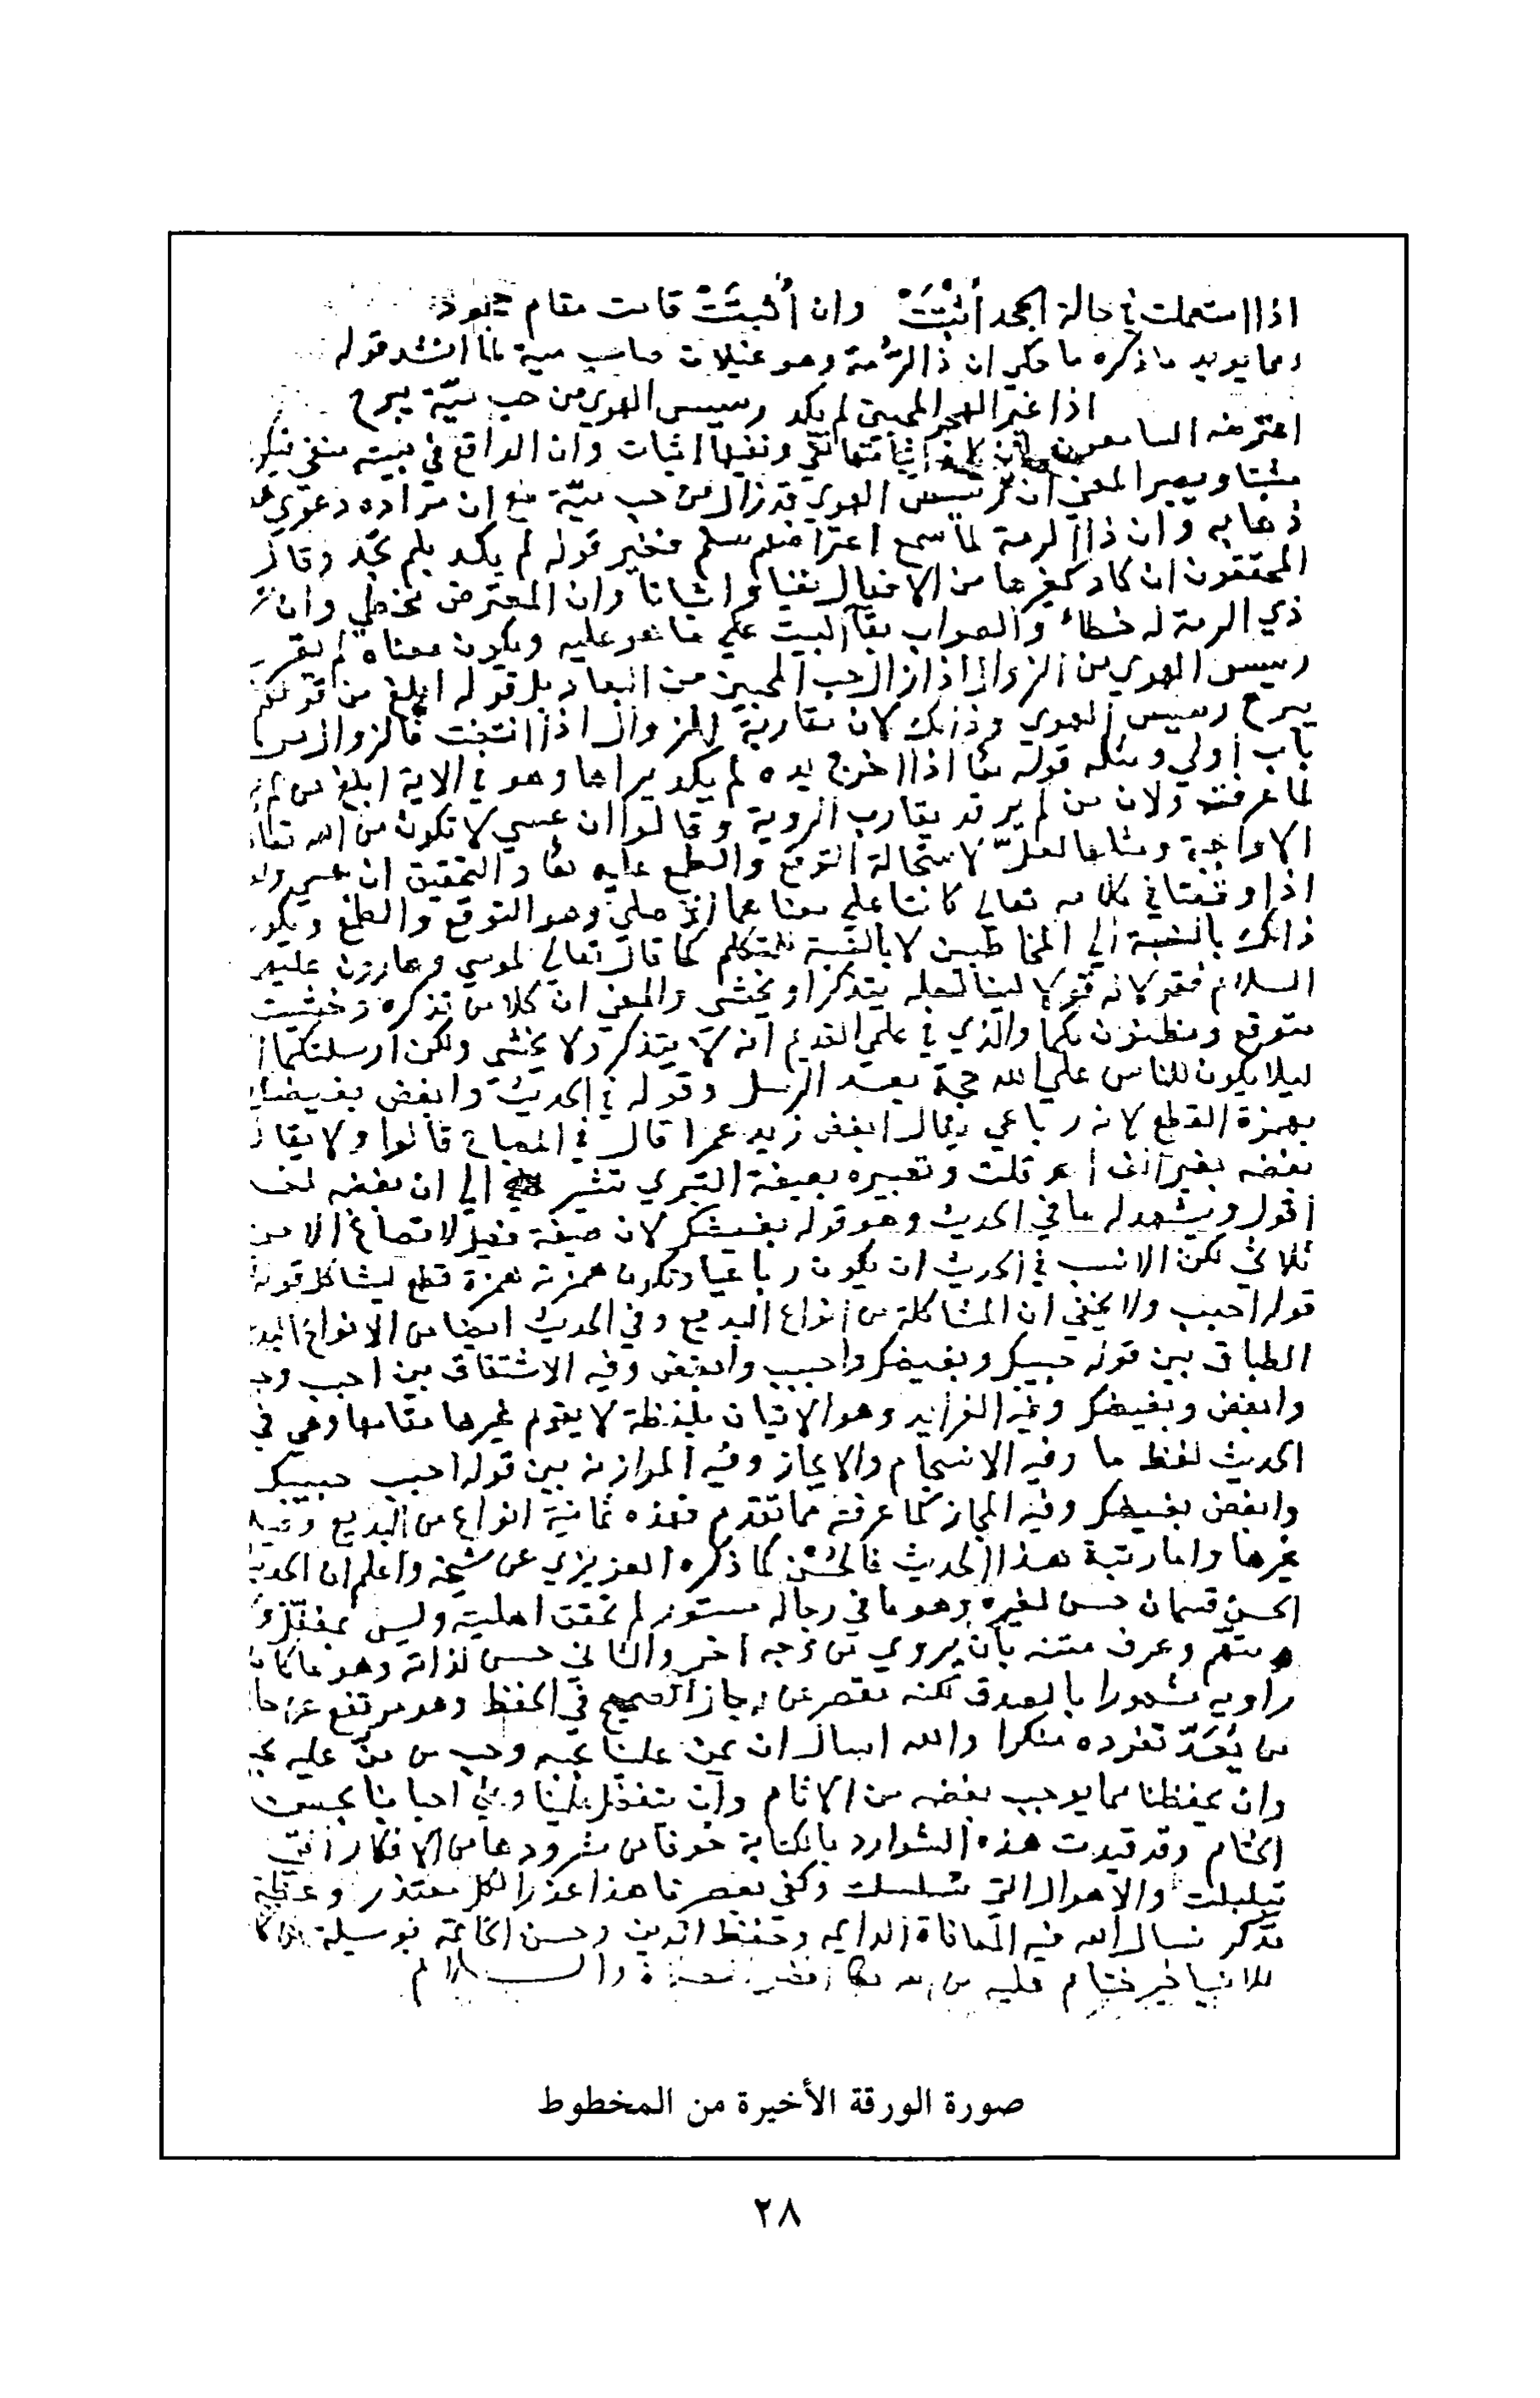 اذا استعملت في حالة الجحد أَثْبَتَتْ وان أُثبِتَتْ قامت مقام جحود
ومما يويد ما ذكره ما حكي ان ذا الرُّمة وهو غيلان صاحب مية لما انشد قوله
اذا غير الهجر المحبين لم يكد رسيس الهوي من حب ميّة يبرح
اعترضه السامعون بان كاد اثباتها نفي ونفيها اثبات وان الواقع في بيته منفي فيكون
مثبتا ويصير المعني ان رسيس الهوي قد زال من حب ميّة مع ان مراده دعوي عدم
ذهابه وان ذا الرمة لما سمع اعتراضهم سلم فغير قوله لم يكد بلم يجد وقال
المحققون ان كاد كغيرها من الافعال نفيا واثباتا وان المعترض مخطي وان
ذي الرمة له خطاء والصواب بقا البيت علي ما هو عليه ويكون معناه لم يقرب
رسيس الهوي من الزوال اذا زال حب المحبين من البعاد بل قوله ابلغ من قولك
يبرح رسيس الهوي وذلك لان مقاربة الزوال اذا انتفت فالزوال من
باب اولي ومثله قوله تعا اذا اخرج يده لم يكد يراها وهو في الاية ابلغ من لم
لما عرفت ولان من لم ير قد يقارب الروية وقالوا ان عسي لا تكون من الله تعا
الا واجبة ومثلها لعلّ لاستحالة التوقع والطمع عليه تعا والتحقيق ان عسي ولعل
اذا وقعتا في كلامه تعالي كانتا علي معناهما الاصلي وهو التوقع والطمع ويكون
ذالك بالنسبة الي المخاطبين لا بالنسبة للمتكلم كما قال تعالي لموسي وهارون عليهما
السلام فقولا له قولا لينا لعله يتذكر او يخشي والمعني ان كلا من تذكره وخشيته
متوقع ومظنون لكما والذي في علمي القديم انه لا يتذكر ولا يخشي ولكن ارسلتكما
ليلا يكون للناس علي الله حجة بعد الرسل وقوله في الحديث وابغض بغيضك
بهمزة القطع لانه رباعي يقال ابغض زيد عمرا قال في المصباح قالوا ولا يقال
بغضه بغير الف اهـ قلت وتعبيره بصيغة التبري تشير الي ان بغضه لغة
اقول ويشهد له ما في الحديث وهو قوله بغيضك لان صيغة فعيل لا تصاغ الا من
ثلاثي لكن الانسب في الحديث ان يكون رباعيا وتكون همزته همزة قطع ليشاكل قوله
قوله احبب ولا يخفي ان المشاكلة من انواع البديع وفي الحديث ايضا من الانواع البديعية
الطباق بين قوله حبيبك وبغيضك واحبب وابغض وفيه الاشتقاق بين احبب وحبيبك
وابغض وبغيضك وفيه الفرايد وهو الاتيان بلفظة لا يقوم غيرها مقامها وهي في
الحديث لفظ ما وفيه الانسجام والايجاز وفيه الموازنة بين قوله احبب حبيبك
وابغض بغيضك وفيه المجاز كما عرفته مما تقدم فهذه ثمانية انواع من البديع وفيه
غيرها واما رتبة هذا الحديث فالحُسْن كما ذكره العزيزي عن شيخه واعلم ان الحديث
الحسن قسمان حسن لغيره وهو ما في رجاله مستور لم تحقق اهليته وليس بمغفّل ولا
متهم وعرف متنه بان يروي من وجه اخر والثاني حسن لذاته وهو ما كان
راويه مشهورا بالصدق لكنه يقصر عن رجال الصحيح في الحفظ وهو مرتفع عن حال
من يُعَدّ تفرده منكرا والله اسال ان يمن علينا بحبه وحب من منّ عليه بحبه
وان يحفظنا مما يوجب بغضه من الاثام وان يتفضل علينا وعلي احبابنا بحسن
الختام وقد قيدت هذه الشوارد بالكتابة خوفا من شرودها من الافكار التي
تبلبلت والاهوال التي تسلسلت وكفي بعصرنا هذا عذرا لكل معتذر وعظة
مذكر نسال الله فيه المعافاة الدايمه وحفظ الدين وحسن الخاتمة بوسيلة من كان
للانبيا خير ختام عليه من الله تعا افضل الصلاة والسلام
صورة الورقة الأخيرة من المخطوط
٢٨